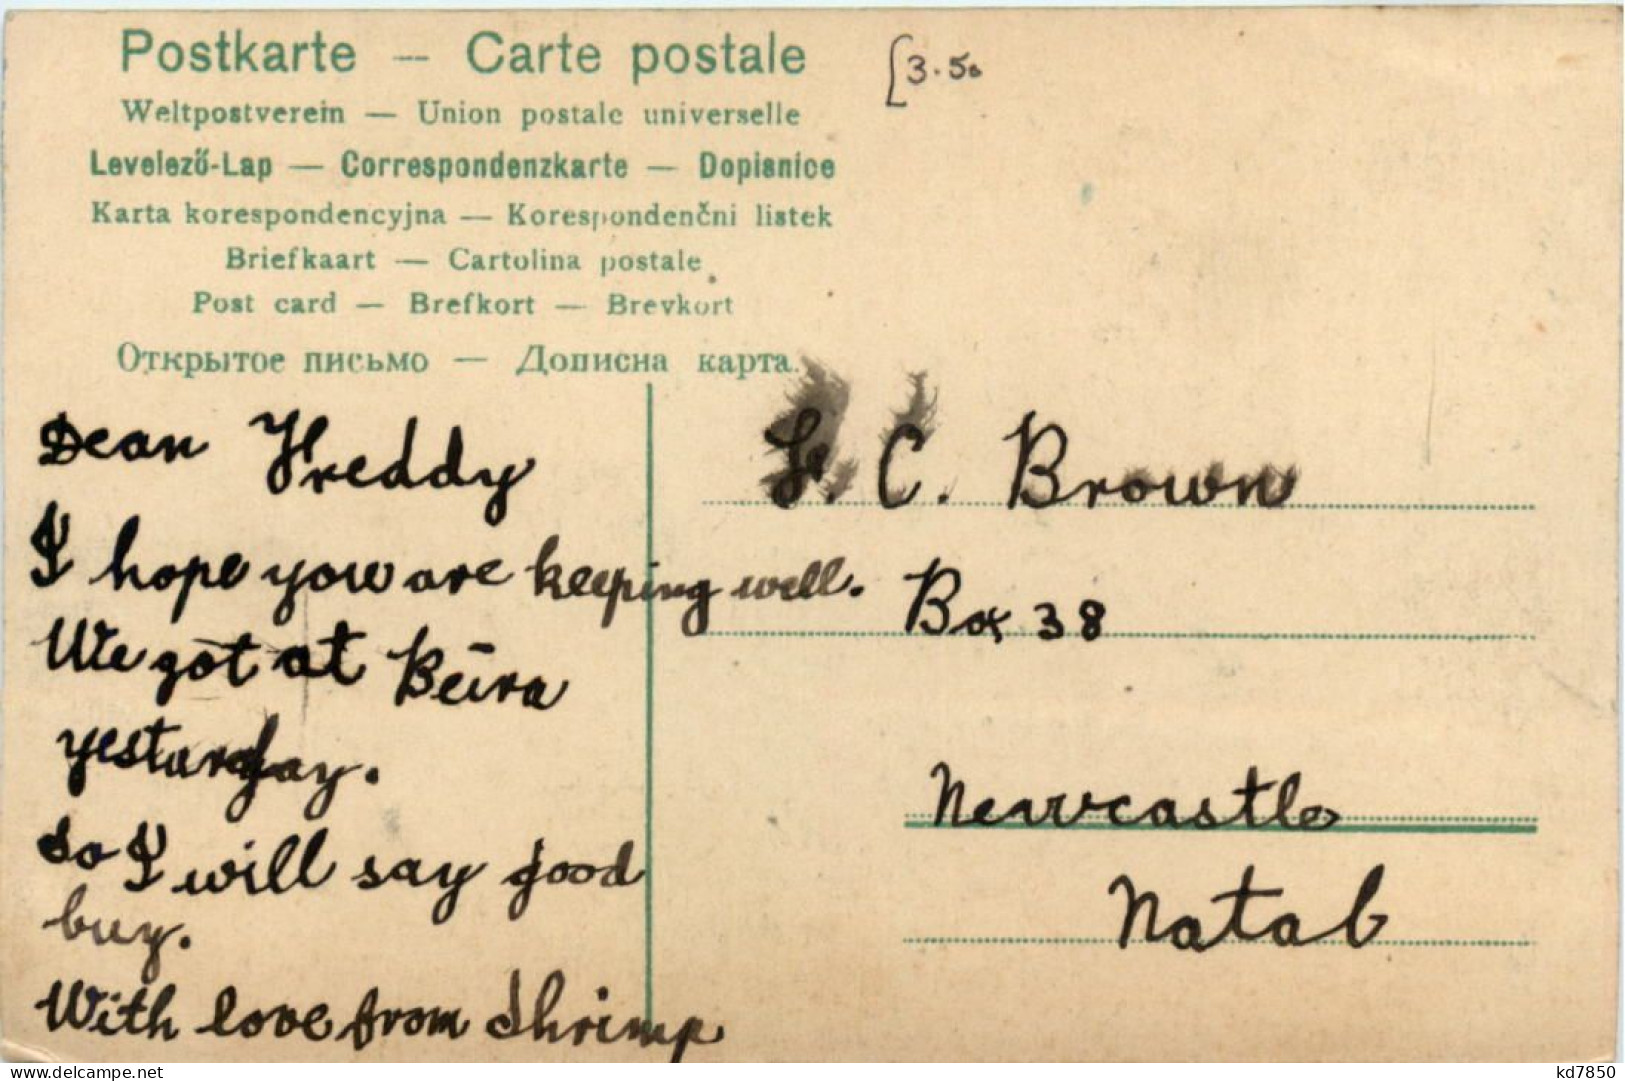 Postkarte — Carte postale
Weltpostverein — Union postale universelle
Levelező-Lap — Correspondenzkarte — Dopisnice
Karta korespondencyjna — Korespondenčni listek
Briefkaart — Cartolina postale
Post card — Brefkort — Brevkort
Открытое письмо — Дописна карта.
[3.50
Dear Freddy
I hope you are keeping well.
We got at Beira
yesturday.
So I will say good
buy.
With love from Shrimp
C. Brown
Box 38
Newcastle
Natal
www.delcampe.net
kd7850